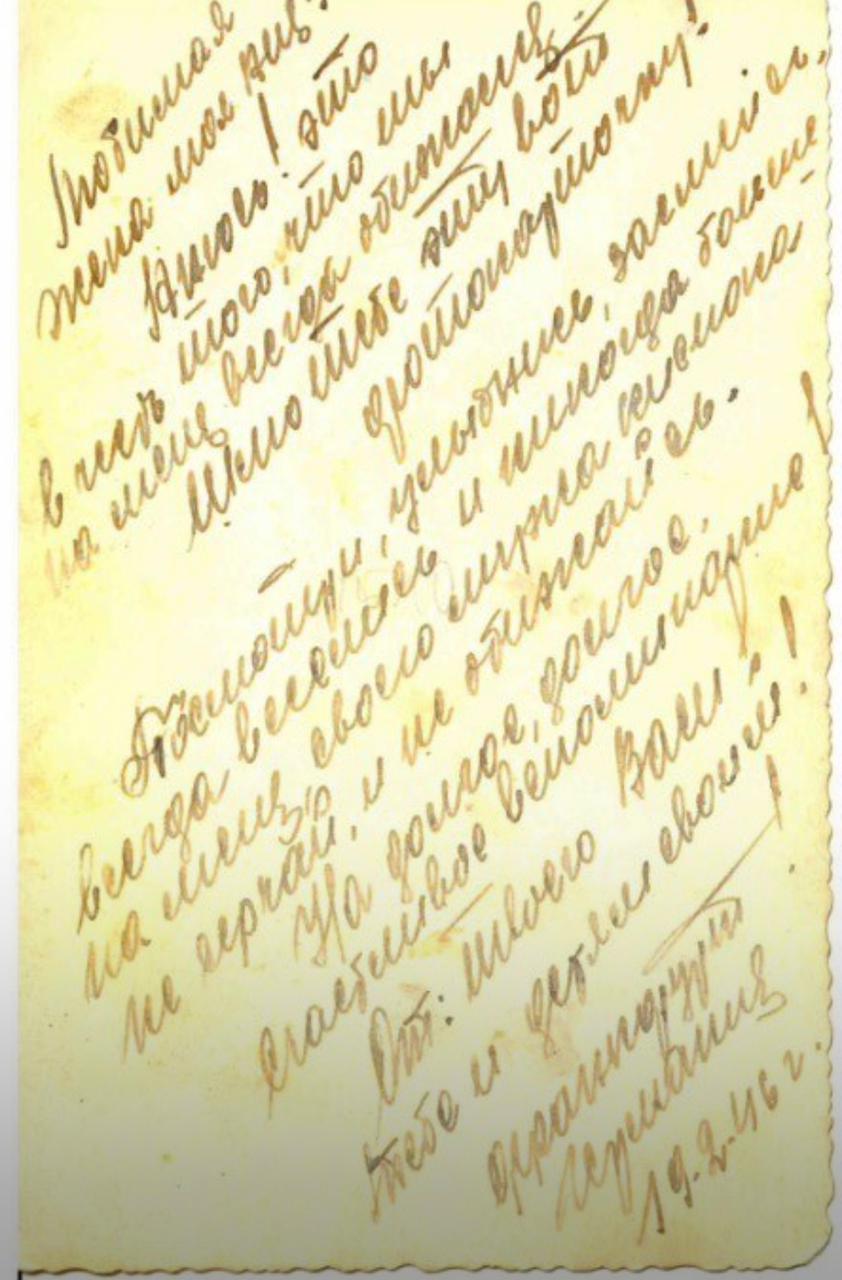 Любимая
жена моя
Анюсь! это
в честь того, что ты
на меня всегда
Шлю тебе эту вот
фотокарточку!
Посмотри, улыбнись, засмейсь,
всегда веселись и никогда больше
на меня, своего мужа
не серчай, и не обижайсь.
На долгое, долгое,
счастливое воспоминание!
От: твоего Вани -
тебе и детям своим!
Франкфурт
Германия
19.2.46 г.